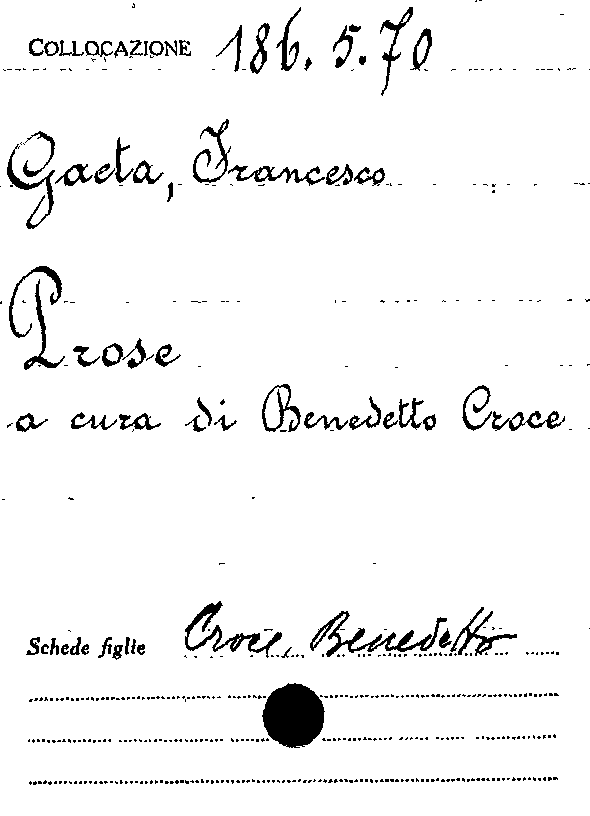 COLLOCAZIONE 186. 5. 70
Gaeta, Francesco
Prose
a cura di Benedetto Croce
Schede figlie Croce, Benedetto